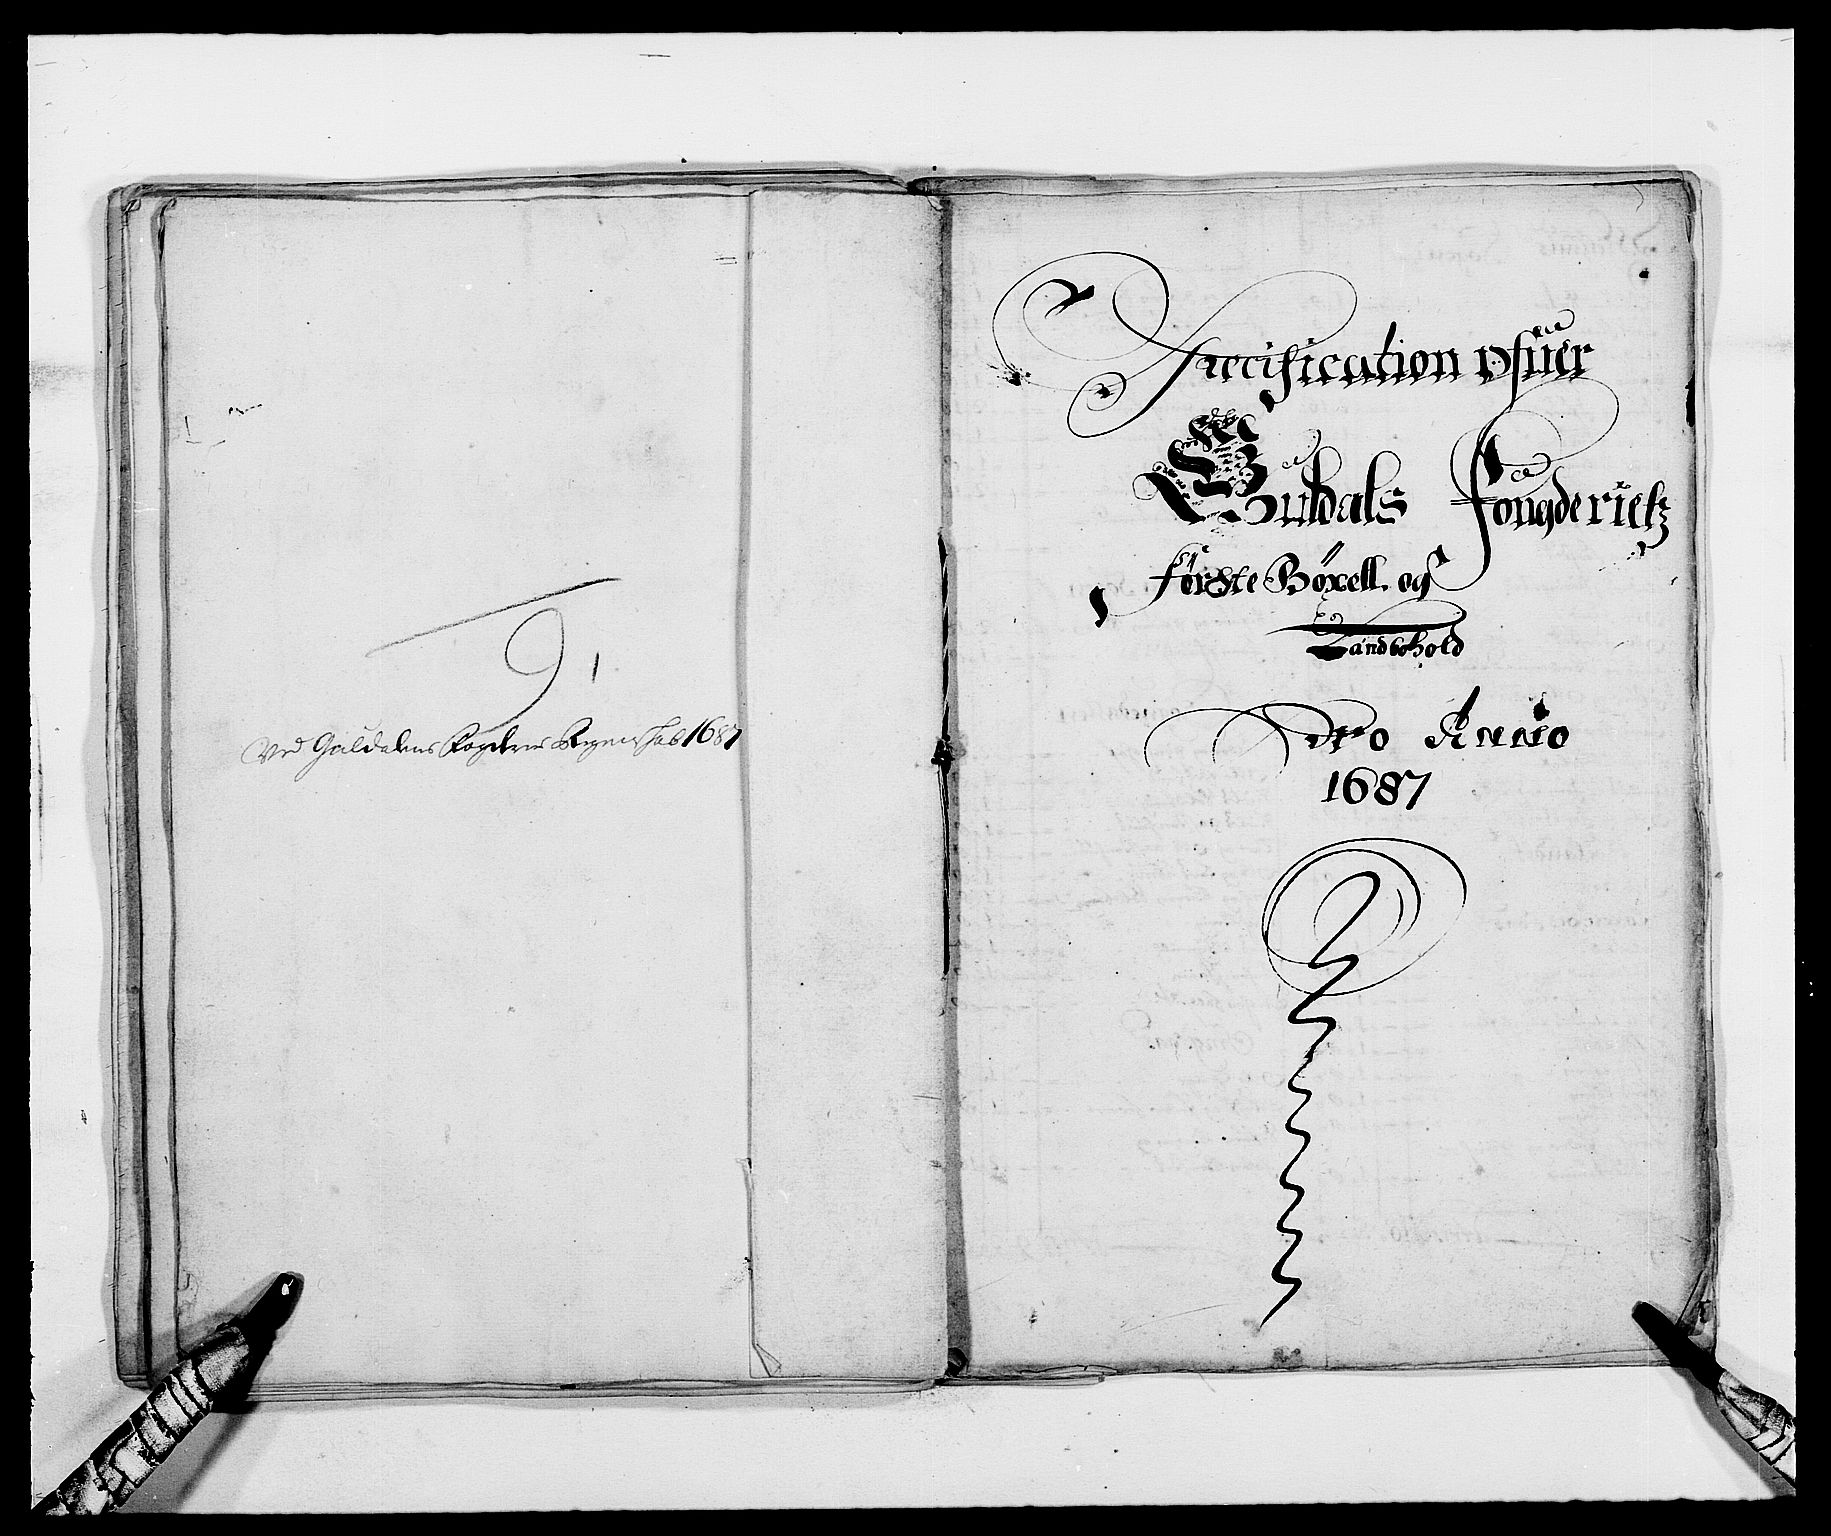 9 1
Ved Guldalens Fogderies Regenskab 1687
Specification ofuer
Guldals Fougderietz
Første Bøxell. og
Landbohold
Pro Anno
1687